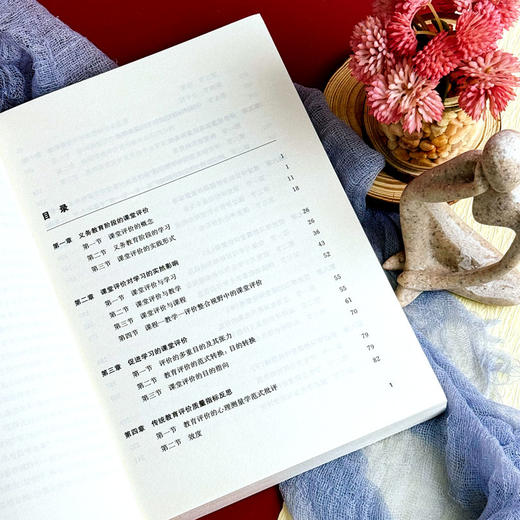 目 录
第一章 义务教育阶段的课堂评价 1
第一节 课堂评价的概念 1
第二节 义务教育阶段的学习 11
第三节 课堂评价的实践形式 18
第二章 课堂评价对学习的实然影响 26
第一节 课堂评价与学习 26
第二节 课堂评价与教学 36
第三节 课堂评价与课程 43
第四节 课程—教学—评价整合视野中的课堂评价 52
第三章 促进学习的课堂评价 55
第一节 评价的多重目的及其张力 55
第二节 教育评价的范式转换：目的转换 61
第三节 课堂评价的目的指向 70
第四章 传统教育评价质量指标反思 79
第一节 教育评价的心理测量学范式批评 79
第二节 效度 82
1